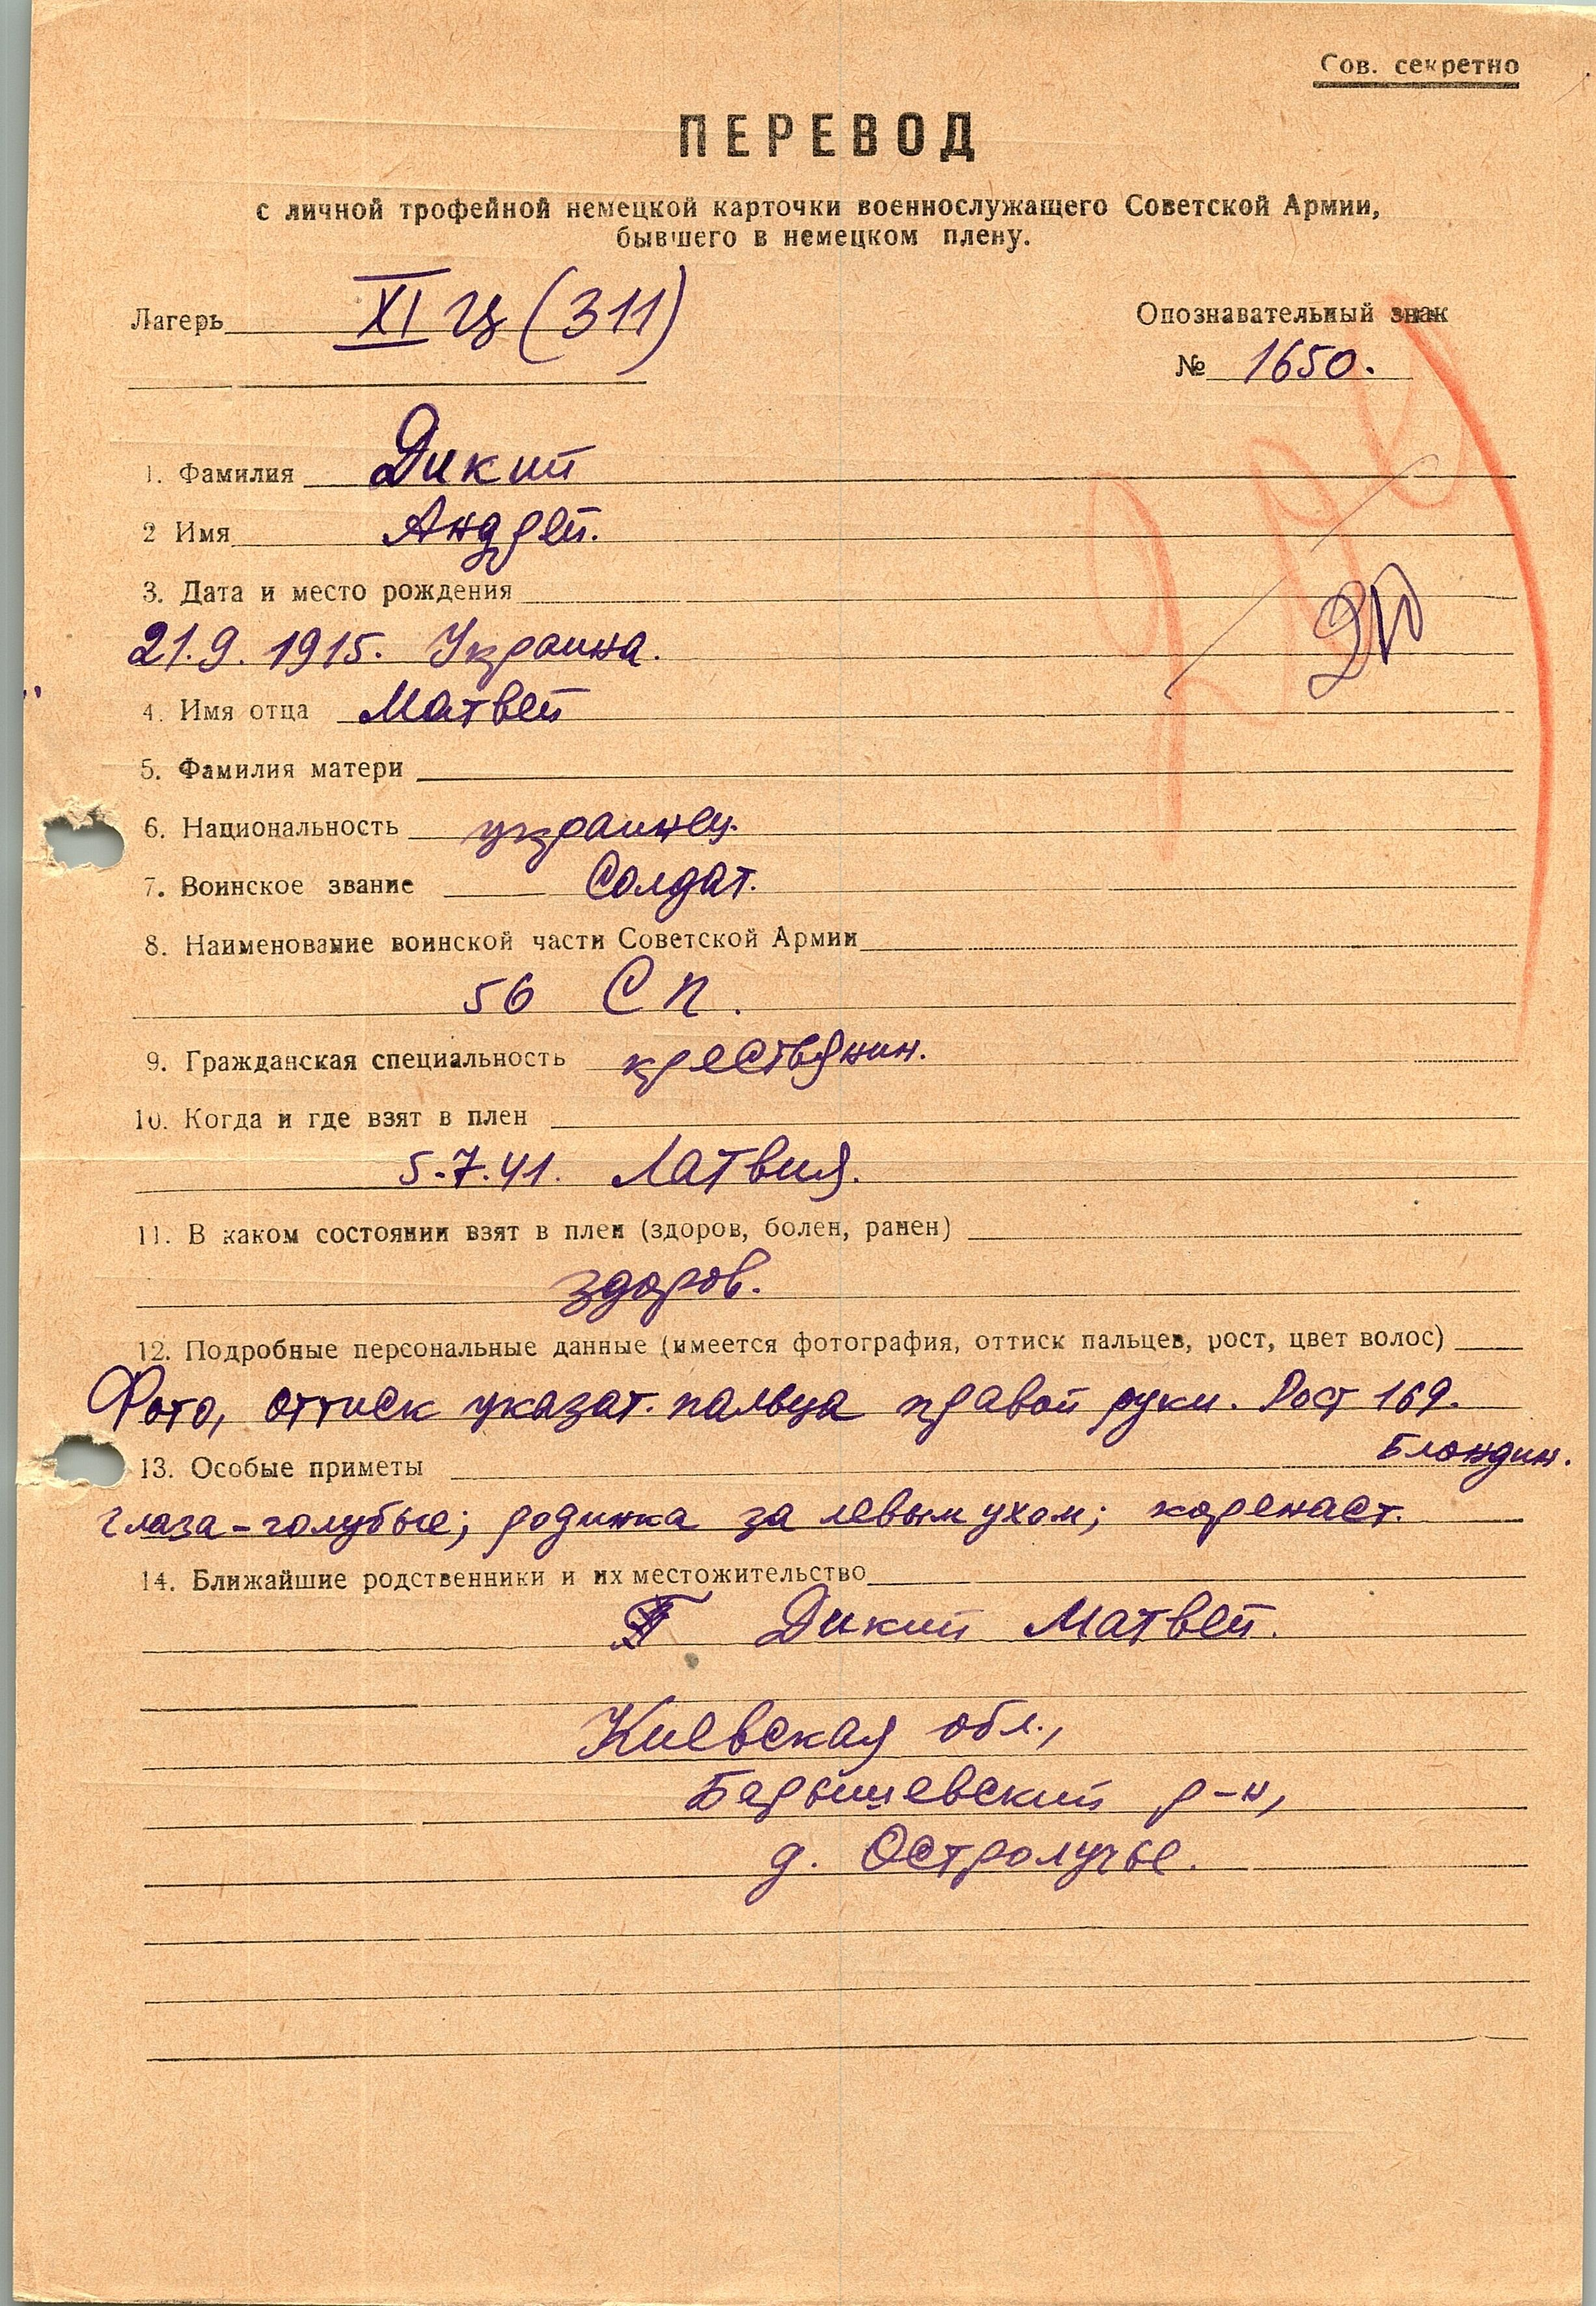 Сов. секретно
ПЕРЕВОД
с личной трофейной немецкой карточки военнослужащего Советской Армии,
бывшего в немецком плену.
Лагерь XI Ц (311)
Опознавательный знак
№ 1650.
1. Фамилия Дикий
2 Имя Андрей.
3. Дата и место рождения
21.9.1915. Украина.
4. Имя отца Матвей
5. Фамилия матери
6. Национальность украинец.
7. Воинское звание Солдат.
8. Наименование воинской части Советской Армии
56 СП.
9. Гражданская специальность крестьянин.
10. Когда и где взят в плен
5.7.41. Латвия.
11. В каком состоянии взят в плен (здоров, болен, ранен)
здоров.
12. Подробные персональные данные (имеется фотография, оттиск пальцев, рост, цвет волос)
Фото, оттиск указат. пальца правой руки. Рост 169.
Блондин.
13. Особые приметы
глаза-голубые; родинка за левым ухом; коренаст.
14. Ближайшие родственники и их местожительство
Дикий Матвей.
Киевская обл.,
Барышевский р-н,
д. Остролучье.